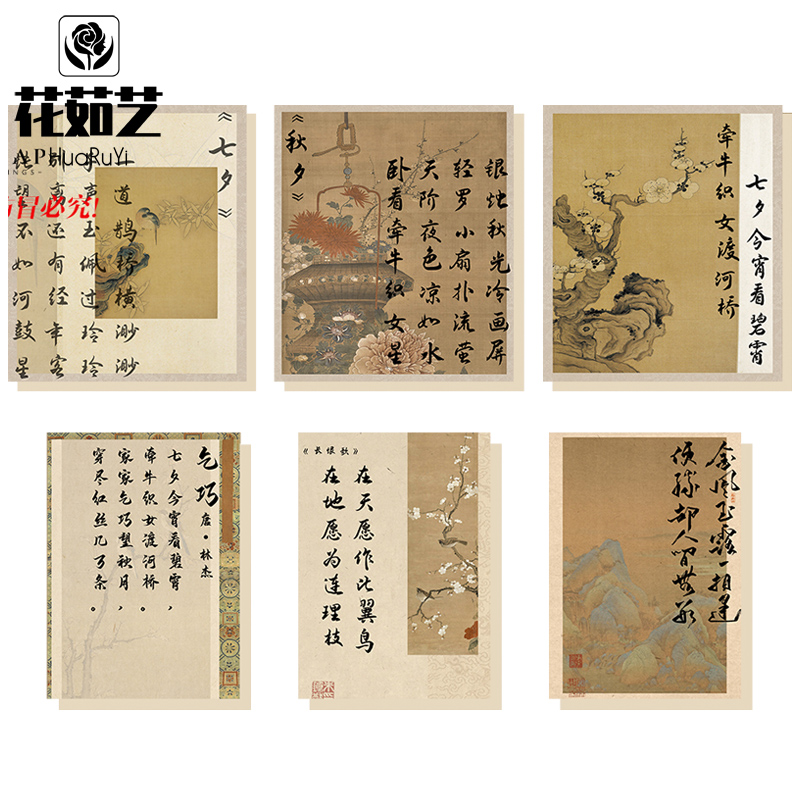 花茹艺
HuaRuYi
冒必究!
《七夕》
道鹊桥横渺渺
声玉佩过玲玲
离还有经年客
望不如河鼓星
《秋夕》
银烛秋光冷画屏
轻罗小扇扑流萤
天阶夜色凉如水
卧看牵牛织女星
七夕今宵看碧霄
牵牛织女渡河桥
乞巧
唐·林杰
七夕今宵看碧霄，
牵牛织女渡河桥。
家家乞巧望秋月，
穿尽红丝几万条。
《长恨歌》
在天愿作比翼鸟
在地愿为连理枝
金风玉露一相逢
便胜却人间无数